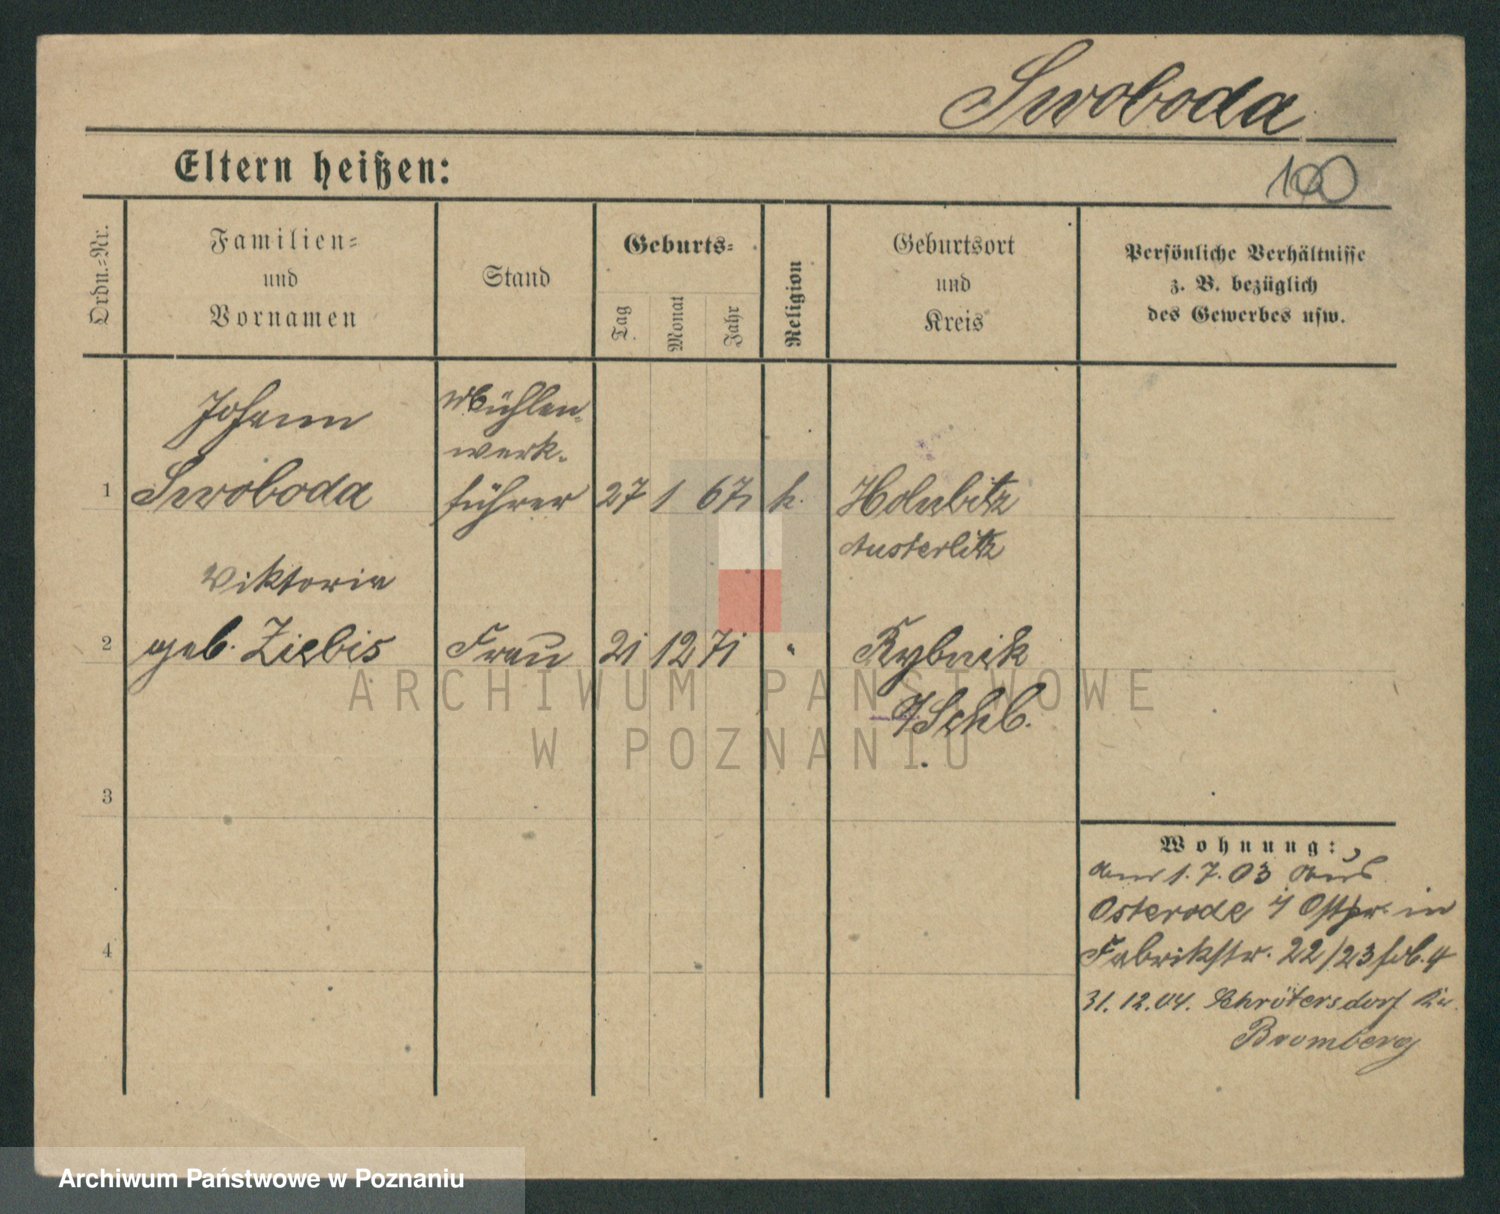 Swoboda
Eltern heißen:
100
Ordn.-Nr.
Familien-
und
Vornamen
Stand
Geburts-
Tag
Monat
Jahr
Religion
Geburtsort
und
Kreis
Persönliche Verhältnisse
z. B. bezüglich
des Gewerbes usw.
Johann
Mühlen-
werk-
1 Swoboda führer 27 1 67 k. Holubitz
Austerlitz
Viktoria
2 geb. Ziebis Frau 21 12 71 " Rybnik
Schl.
3
Wohnung:
am 1.7.03 aus
Osterode Ostpr. in
4
Fabrikstr. 22/23
31.12.04. Schrötersdorf Kr.
Bromberg
ARCHIWUM PAŃSTWOWE
W POZNANIU
Archiwum Państwowe w Poznaniu